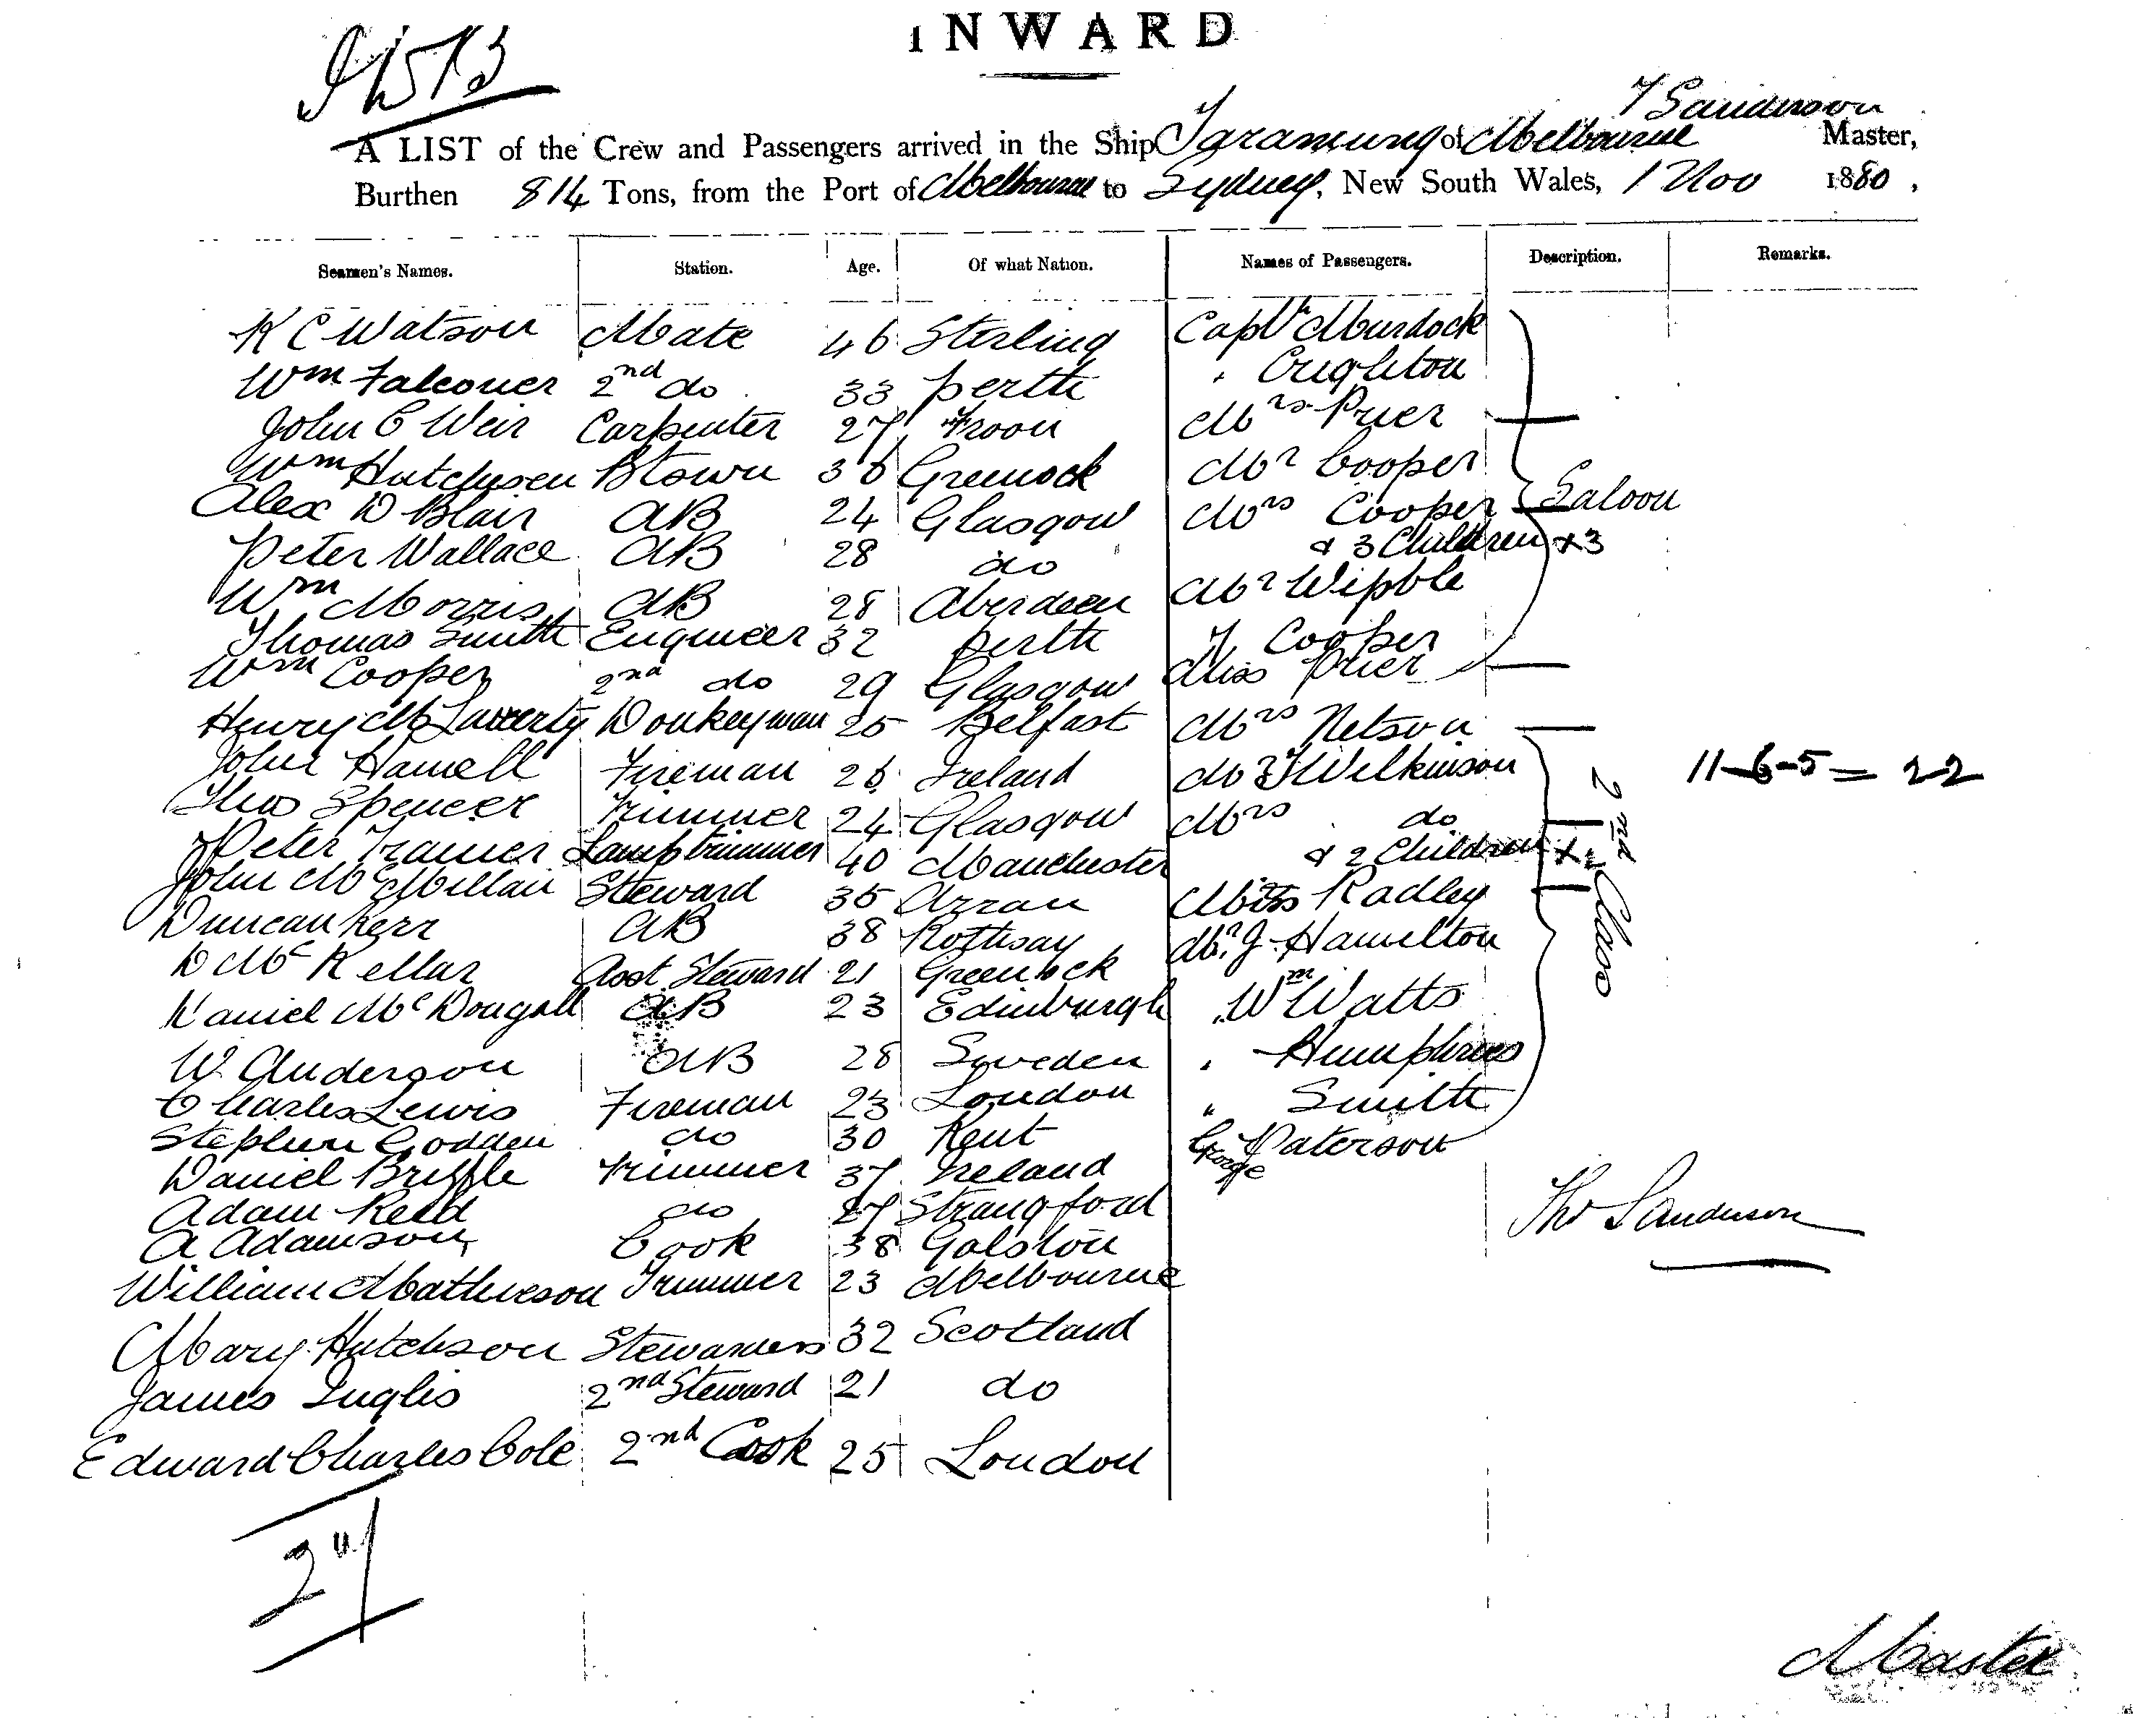 INWARD
T Sanderson
A LIST of the Crew and Passengers arrived in the Ship Tararmung of Melbourne Master,
Burthen 814 Tons, from the Port of Melbourne to Sydney, New South Wales, 1 Nov 1880,
Seamen's Names. Station. Age. Of what Nation. Names of Passengers. Description. Remarks.
K C Watson Mate 46 Sterling Capt Murdock
Wm Falconer 2nd do 33 perth " Crighton
John C Weir Carpenter 27 Troon Mrs Prier
Wm Hutchison Bsown 36 Greenock Mr Cooper
Alex D Blair AB 24 Glasgow Mrs Cooper Saloon
Peter Wallace AB 28 do & 3 Children x3
Wm Morris AB 28 Aberdeen Mr Wipble
Thomas Smith Engineer 32 perth T Cooper
Wm Cooper 2nd do 29 Glasgow Miss Prier
Henry McLaverty Donkeyman 25 Belfast Mrs Nelson
John Hamell Fireman 26 Ireland Mr T Wilkinson 11-6-5 = 22
Thos Spencer Trimmer 24 Glasgow Mrs do
Peter Tramer Lamptrimmer 40 Manchester & 2 Children
John McMillan Steward 35 Arran Miss Radley 2nd Class
Duncan Kerr AB 38 Rothsay Mr J Hamilton
D McKellar Asst Steward 21 Greenock
Daniel McDougall AB 23 Edinburgh " Wm Watts
W. Anderson AB 28 Sweden " Humphries
Charles Lewis Fireman 23 London " Smith
Stephen Godden do 30 Kent George Paterson
Daniel Briffle Trimmer 37 Ireland
Adam Reid do 27 Strangford Tho Sanderson
A Adamson Cook 38 Galston
William Mathieson Trimmer 23 Melbourne
Mary Hutchison Stewardess 32 Scotland
James Inglis 2nd Steward 21 do
Edward Charles Cole 2nd Cook 25 London
27
Master